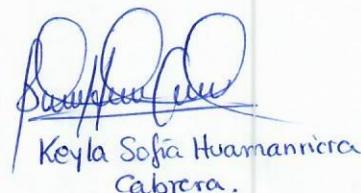 Keyla Sofía Huamanricra
Cabrera.